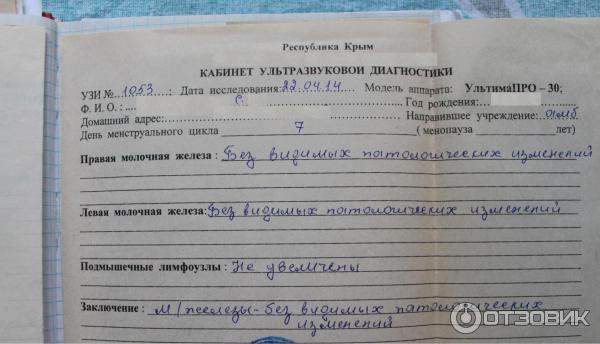 Республика Крым
КАБИНЕТ УЛЬТРАЗВУКОВОЙ ДИАГНОСТИКИ
УЗИ № 1053 ; Дата исследования: 22.04.14 Модель аппарата: УльтимаПРО – 30;
Ф. И. О. : С. Год рождения:
Домашний адрес: Направившее учреждение:
День менструального цикла 7 ( менопауза лет)
Правая молочная железа : Без видимых патологических изменений
Левая молочная железа: Без видимых патологических изменений
Подмышечные лимфоузлы : Не увеличены
Заключение : м/железы - без видимых патологических
изменений
ОТЗОВИК